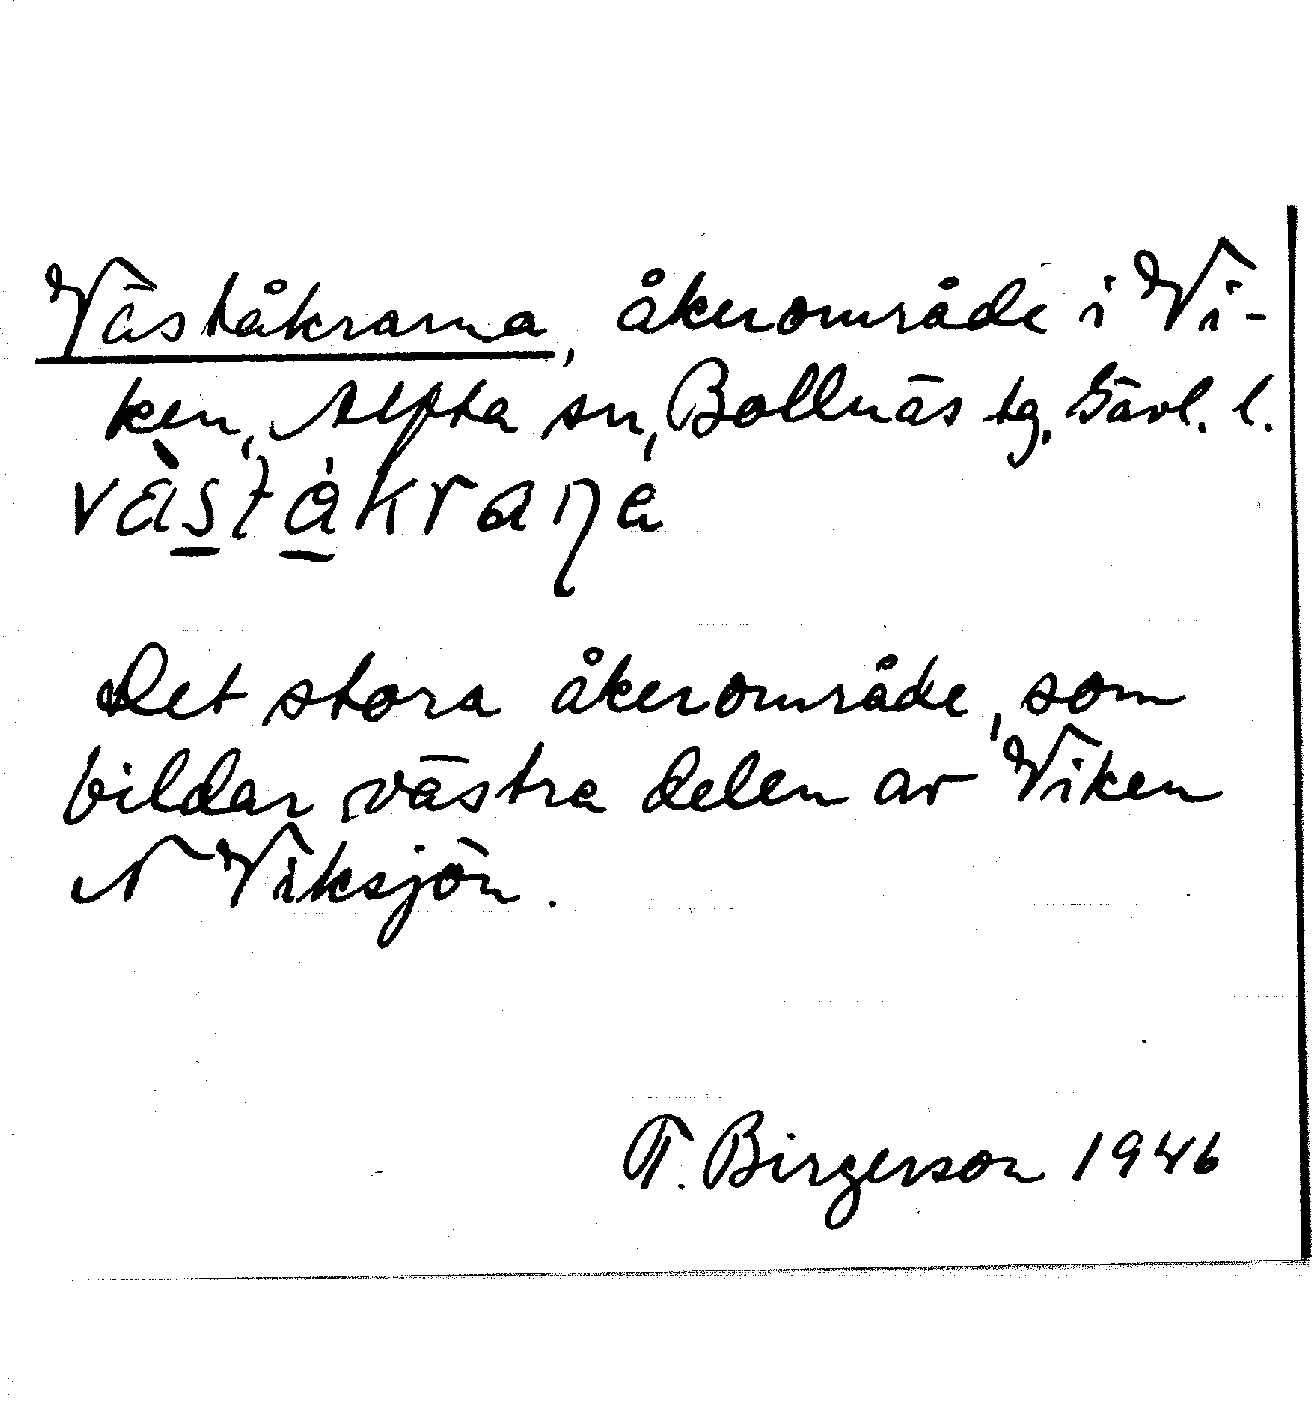 Väståkrarna, åkerområde i Vi-
ken, Alfta sn, Bollnäs tg, Gävl. l.
Det stora åkerområde, som
bildar västra delen av Viken
N Viksjön.
F. Birgerson 1946